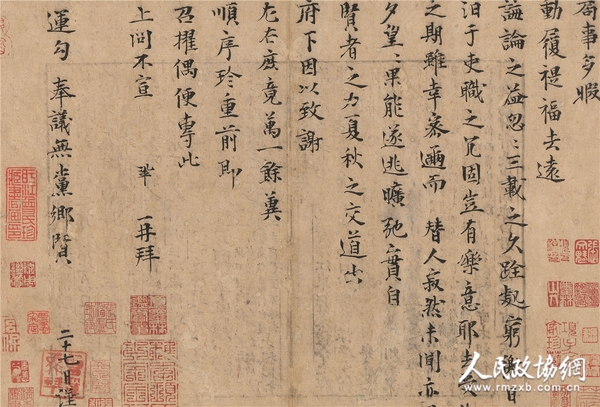 局事多暇
動履禔福去遠
誨論之益忽〻三載之久跧處窮徼日
汩于吏職之冗固豈有樂意耶去受
之期雖幸密邇而替人寂然未聞亦
夕望〻果能遂逃曠弛實自
賢者之力夏秋之交道出
府下因以致謝
左右庶竟萬一餘冀
順序珍重前即
召擢偶便專此
上問不宣 鞏 再拜
運勾奉議無黨鄉賢 二十七日謹
人民政协網
www.rmzxb.com.cn